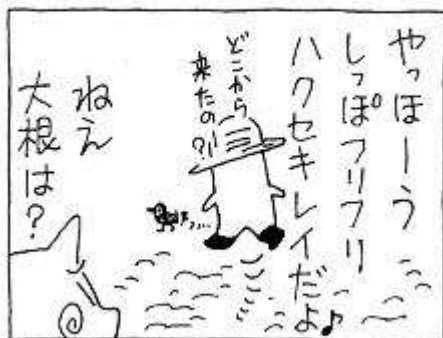 やっほーう
しっぽフリフリ
ハクセキレイだよ♪
どこから
来たの?!
ねえ
大根は?